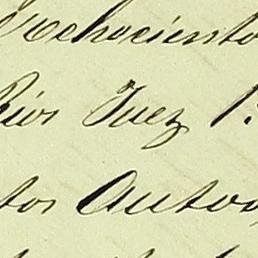 ochociento
Rios Juez 1.
tos Auto